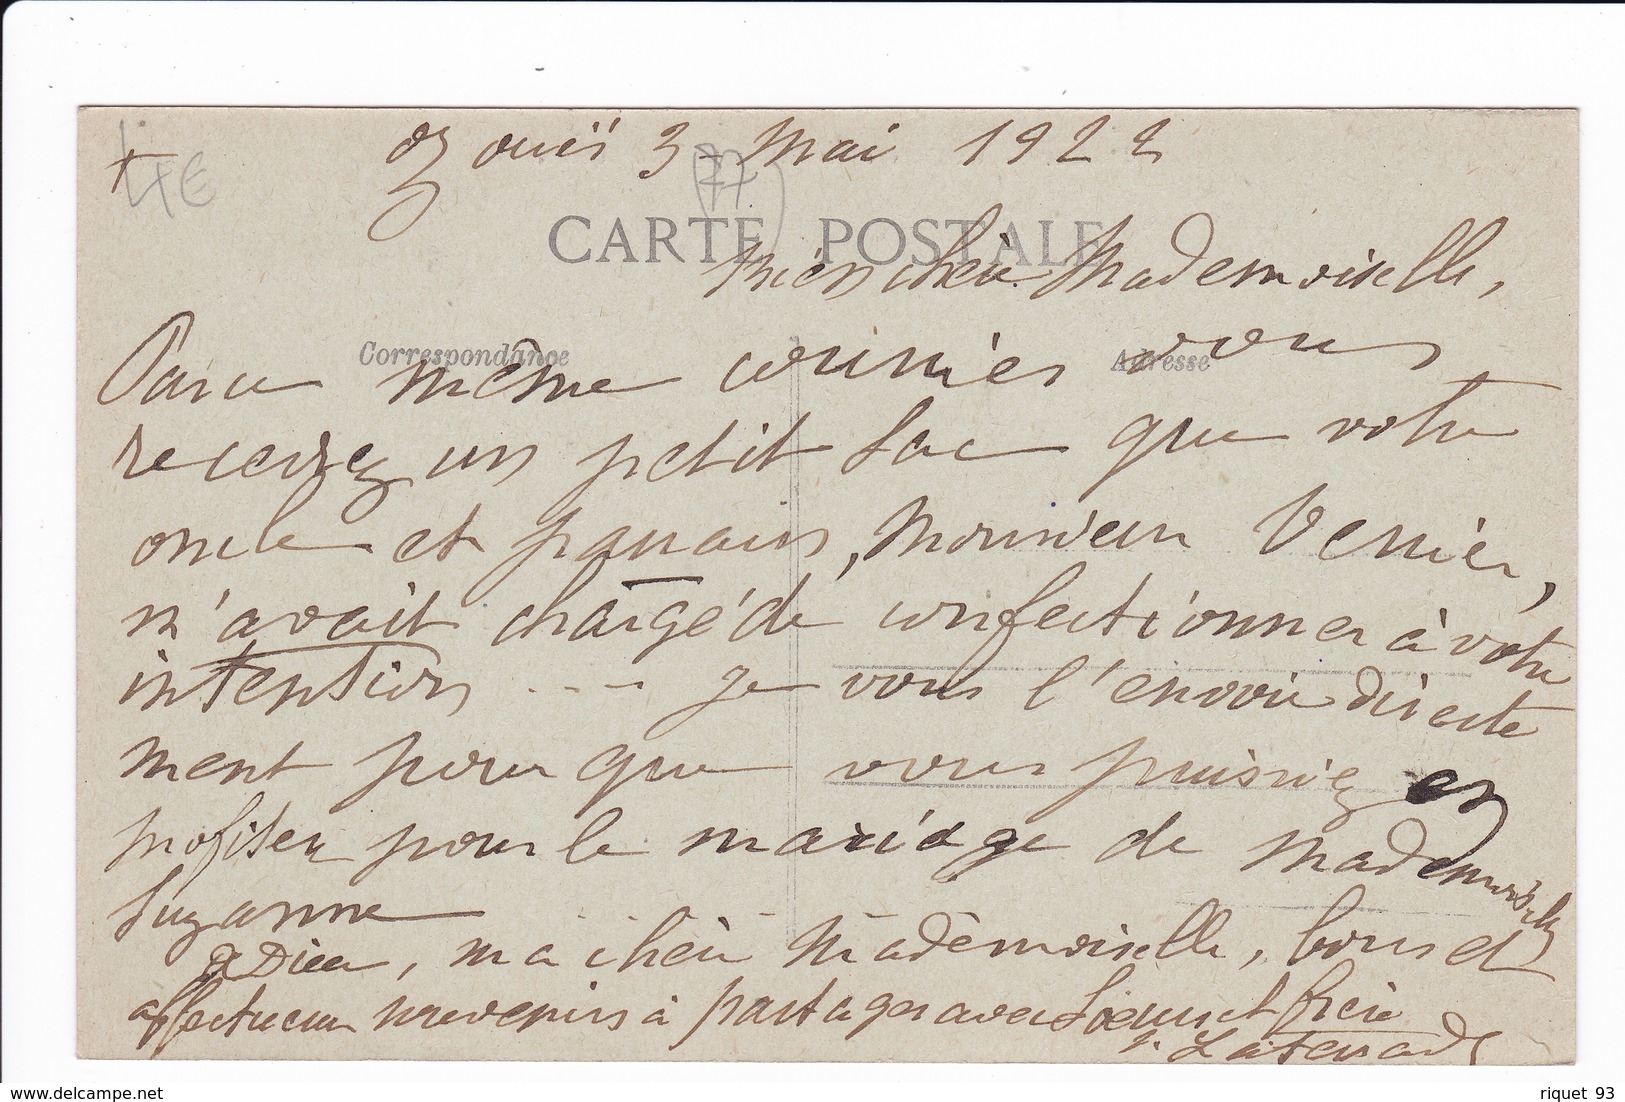 + Ozouër 3 Mai 1922
4€
77
CARTE POSTALE
Bien chère Mademoiselle,
Correspondance
Adresse
Par ce même courrier vous
recevrez un petit sac que votre
oncle et parrain, Monsieur Verrier,
m'avait chargé de confectionner à votre
intention ... je vous l'envoie directe
ment pour que vous puissiez en
profiter pour le mariage de Mademoiselle
Suzanne
a Dieu, ma chère Mademoiselle, bons et
affectueux souvenirs à partager avec Soeurs et frère
delcampe.net
riquet 93